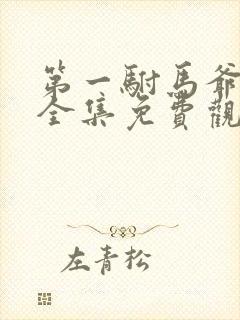 第一駙馬爺
全集免費觀
左青松